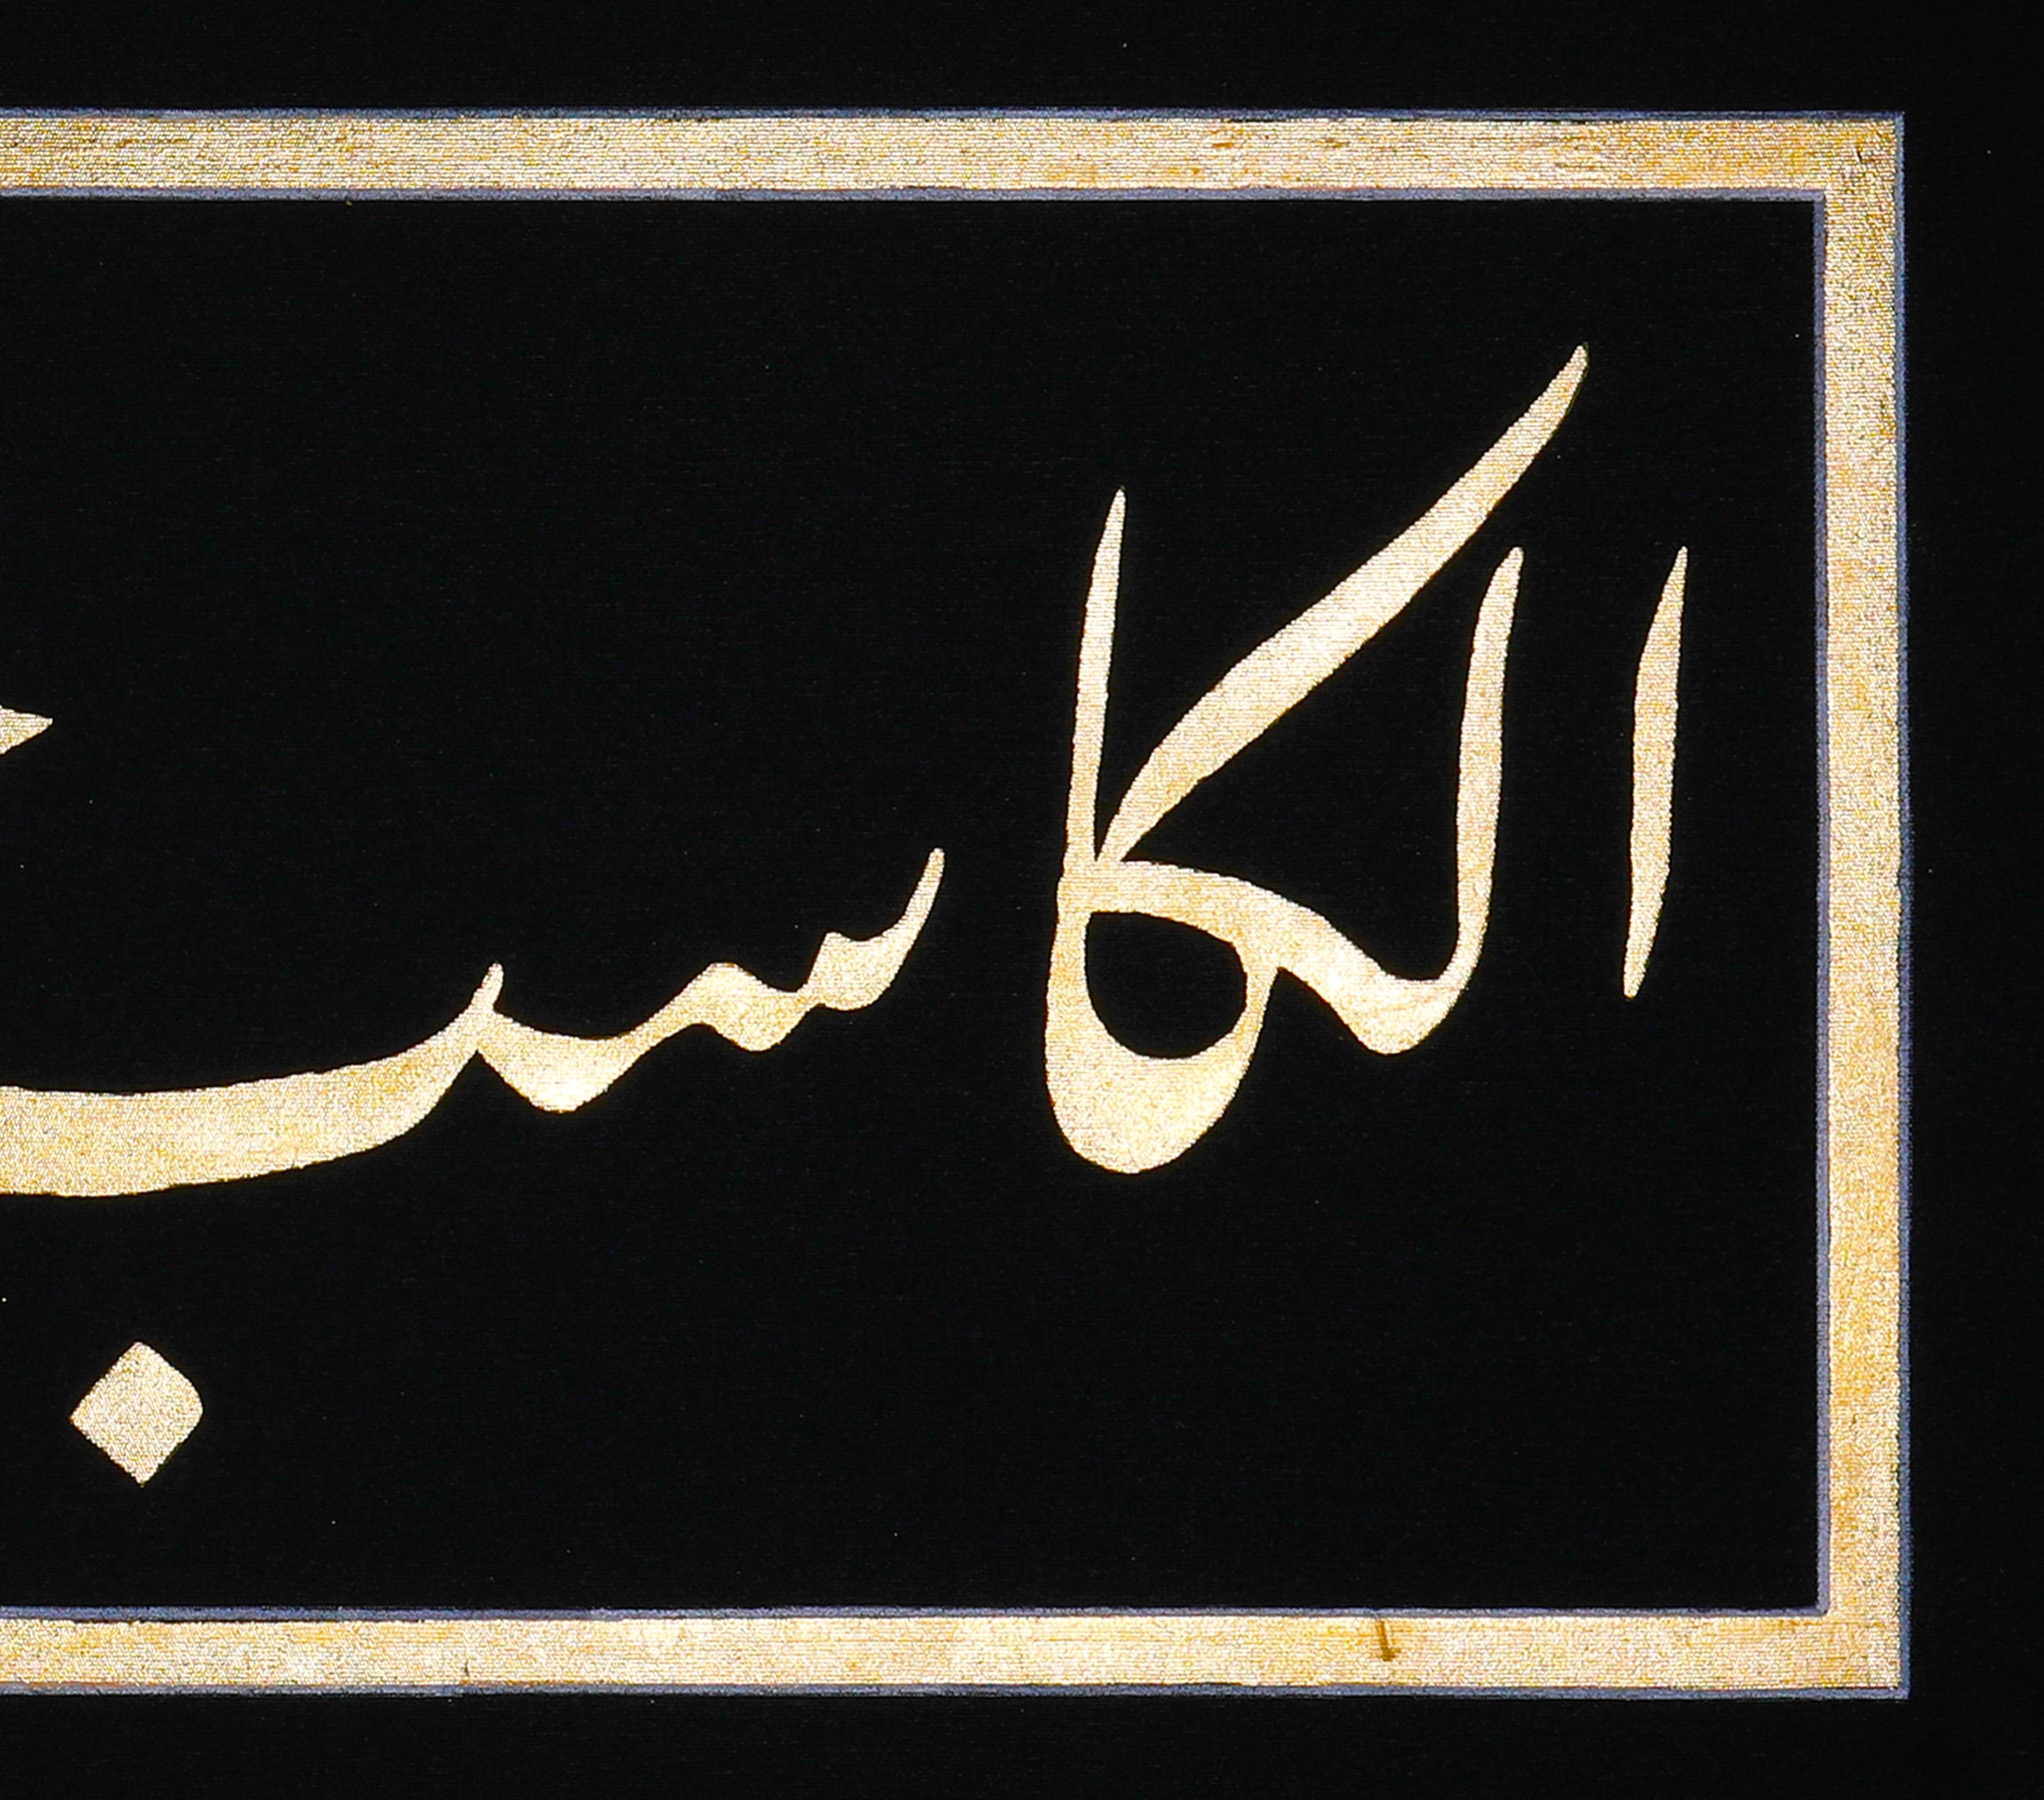 الكاسب